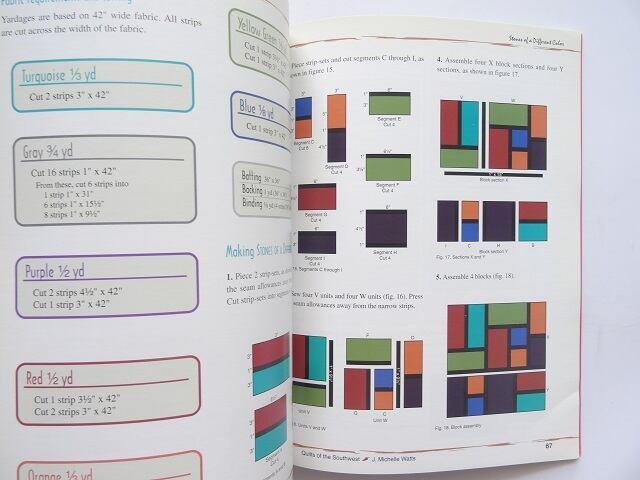 Yardages are based on 42" wide fabric. All strips
are cut across the width of the fabric.
Turquoise ⅓ yd
Cut 2 strips 3" x 42"
Gray ¾ yd
Cut 16 strips 1" x 42"
From these, cut 6 strips into
1 strip 1" x 31"
6 strips 1" x 15½"
8 strips 1" x 9½"
Purple ½ yd
Cut 2 strips 4½" x 42"
Cut 1 strip 3" x 42"
Red ½ yd
Cut 1 strip 3½" x 42"
Cut 2 strips 3" x 42"
Orange ½ yd
Yellow Green
Cut 1 strip
Cut 1 strip
Blue ⅛ yd
Cut 1 strip 3" x 42"
Batting 36" x 36"
Backing 1 yd
Binding
Making STONES OF A
1. Piece 2 strip-sets,
the seam allowances
Cut strip-sets into
3"
3"
3"
3"
Stones of a Different Color
Piece strip-sets and cut segments C through I, as
shown in figure 15.
3"
3"
6"
3"
1"
Segment E
Cut 4
Cut 8
1"
4½"
Segment D
Cut 4
6½"
1"
Segment F
Cut 4
Segment G
Cut 4
1"
4½"
Segment H
Cut 4
Segment I
Cut 4
Segments C through I
Sew four V units and four W units (fig. 16). Press
seam allowances away from the narrow strips.
F
D
G
C
Unit V
Unit W
Units V and W
4. Assemble four X block sections and four Y
sections, as shown in figure 17.
V
W
Block section X
I
C
H
G
Block section Y
Fig. 17. Sections X and Y
5. Assemble 4 blocks (fig. 18).
X
Y
Fig. 18. Block assembly
Quilts of the Southwest
J. Michelle Watts
67